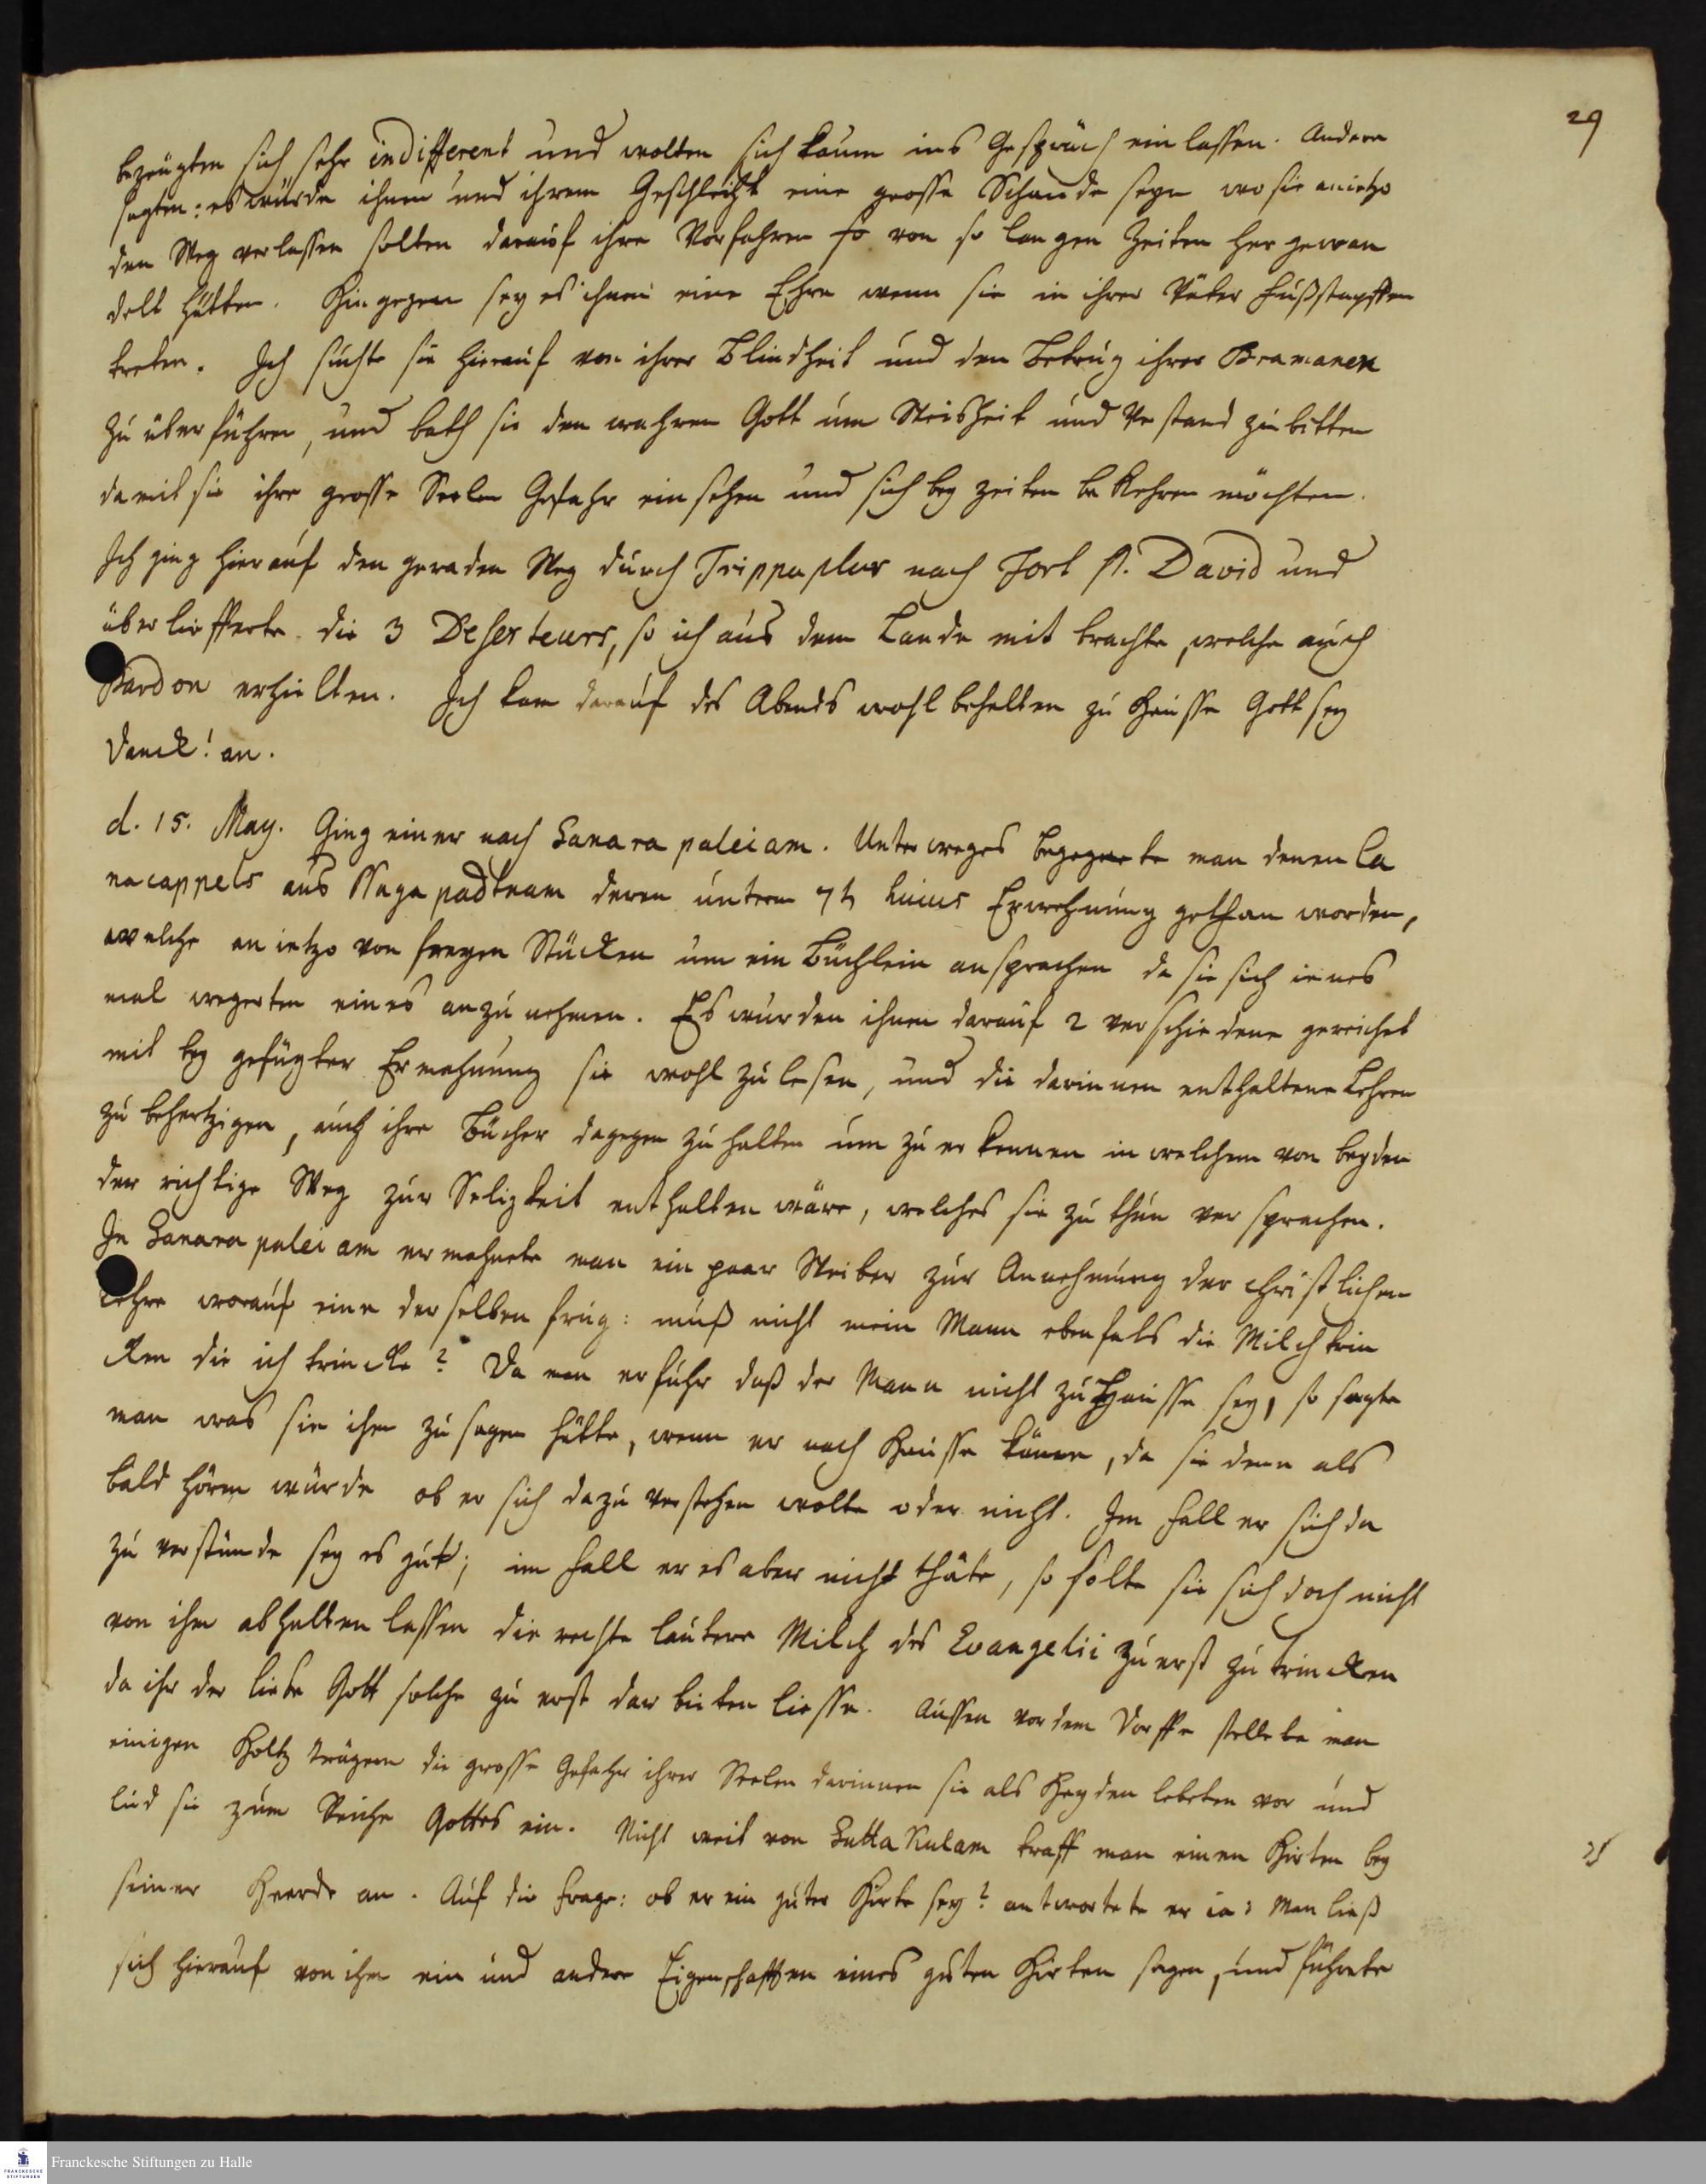 29
bezeugten sich sehr indifferent und wolten sich kaum ins Gespräch ein lassen. Andere
sagten: es würde ihnen und ihrem Geschlecht eine grosse Schande seyn wo sie anietzo
den Weg verlassen solten darauf ihre Vorfahren so von so langen Zeiten her gewan
delt hätten. Hingegen sey es ihnen eine Ehre wenn sie in ihrer Väter Fußstapffen
treten. Ich suchte sie hierauf von ihrer Blindheit und den Betrug ihrer Bramanen
zu überführen, und bath sie den wahren Gott um Weisheit und Verstand zu bitten
damit sie ihre grosse Seelen Gefahr einsehen und sich bey zeiten bekehren möchten.
Ich ging hierauf den geraden Weg durch Trippapluur nach Fort St. David und
überliefferte die 3 Deserteurs, so ich aus dem Lande mit brachte, welche auch
Pardon erhielten. Ich kam darauf des Abends wohl behalten zu Hausse Gott sey
Danck! an.
d. 15. May. Ging einer nach Sanarapaleiam. Unterweges begegnete man denen Ca
nacappels aus Nagapadtnam deren unterm 7t huius Erwehnung gethan worden,
welche anietzo von freyen Stücken um ein Büchlein ansprachen da sie sich ienes
mal wegerten eines anzunehmen. Es wurden ihnen darauf 2 verschiedene gereichet
mit bey gefügter Ermahnung sie wohl zu lesen, und die darinnen enthaltene Lehren
zu behertzigen, auch ihre Bücher dagegen zu halten um zu erkennen in welchem von beyden
der richtige Weg zur Seligkeit enthalten wäre, welches sie zu thun versprachen.
In Sanarapaleiam ermahnete man ein paar Weiber zur Annehmung der christlichen
Lehre worauf eine derselben frug: muß nicht mein Mann ebenfals die Milch trin
cken die ich trincke? Da man erfuhr daß der Mann nicht zu Hausse sey, so sagte
man was sie ihm zu sagen hätte, wenn er nach Hausse käme, da sie denn als
bald hören würde ob er sich dazu verstehen wolte oder nicht. Im Fall er sich da
zu verstünde sey es gut; im Fall er es aber nicht thäte, so solte sie sich doch nicht
von ihm abhalten lassen die rechte lautere Milch des Evangelii zuerst zu trincken
da ihr der liebe Gott solche zu erst dar bieten liesse. Aussen vor dem Dorffe stellete man
einigen Holtz trägern die grosse Gefahr ihrer Seelen darinnen sie als Heyden lebeten vor und
lud sie zum Reiche Gottes ein. Nicht weit von SuttaKulam traff man einen Hirten bey
seiner Heerde an. Auf die Frage: ob er ein guter Hirte sey? antwortete er ia: Man ließ
sich hierauf von ihm ein und andere Eigenschafften eines guten Hirten sagen, und führete